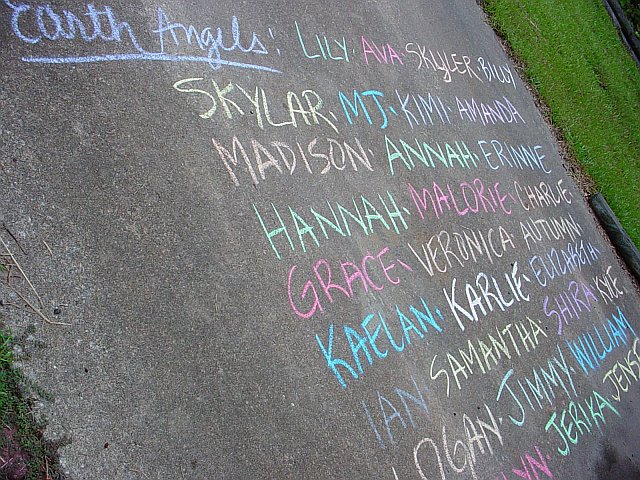 Earth Angels: LILY· AVA· SKYLER· BILLY
SKYLAR· MJ· KIMI· AMANDA
MADISON· ANNAH· ERINNE
HANNAH· MALORIE· CHARLIE
GRACE· VERONICA AUTUMN
KAELAN· KARLIE· ELIZABETH
IAN· SAMANTHA· SHIRA· KYLE
LOGAN· JIMMY· WILLIAM
JERIKA·